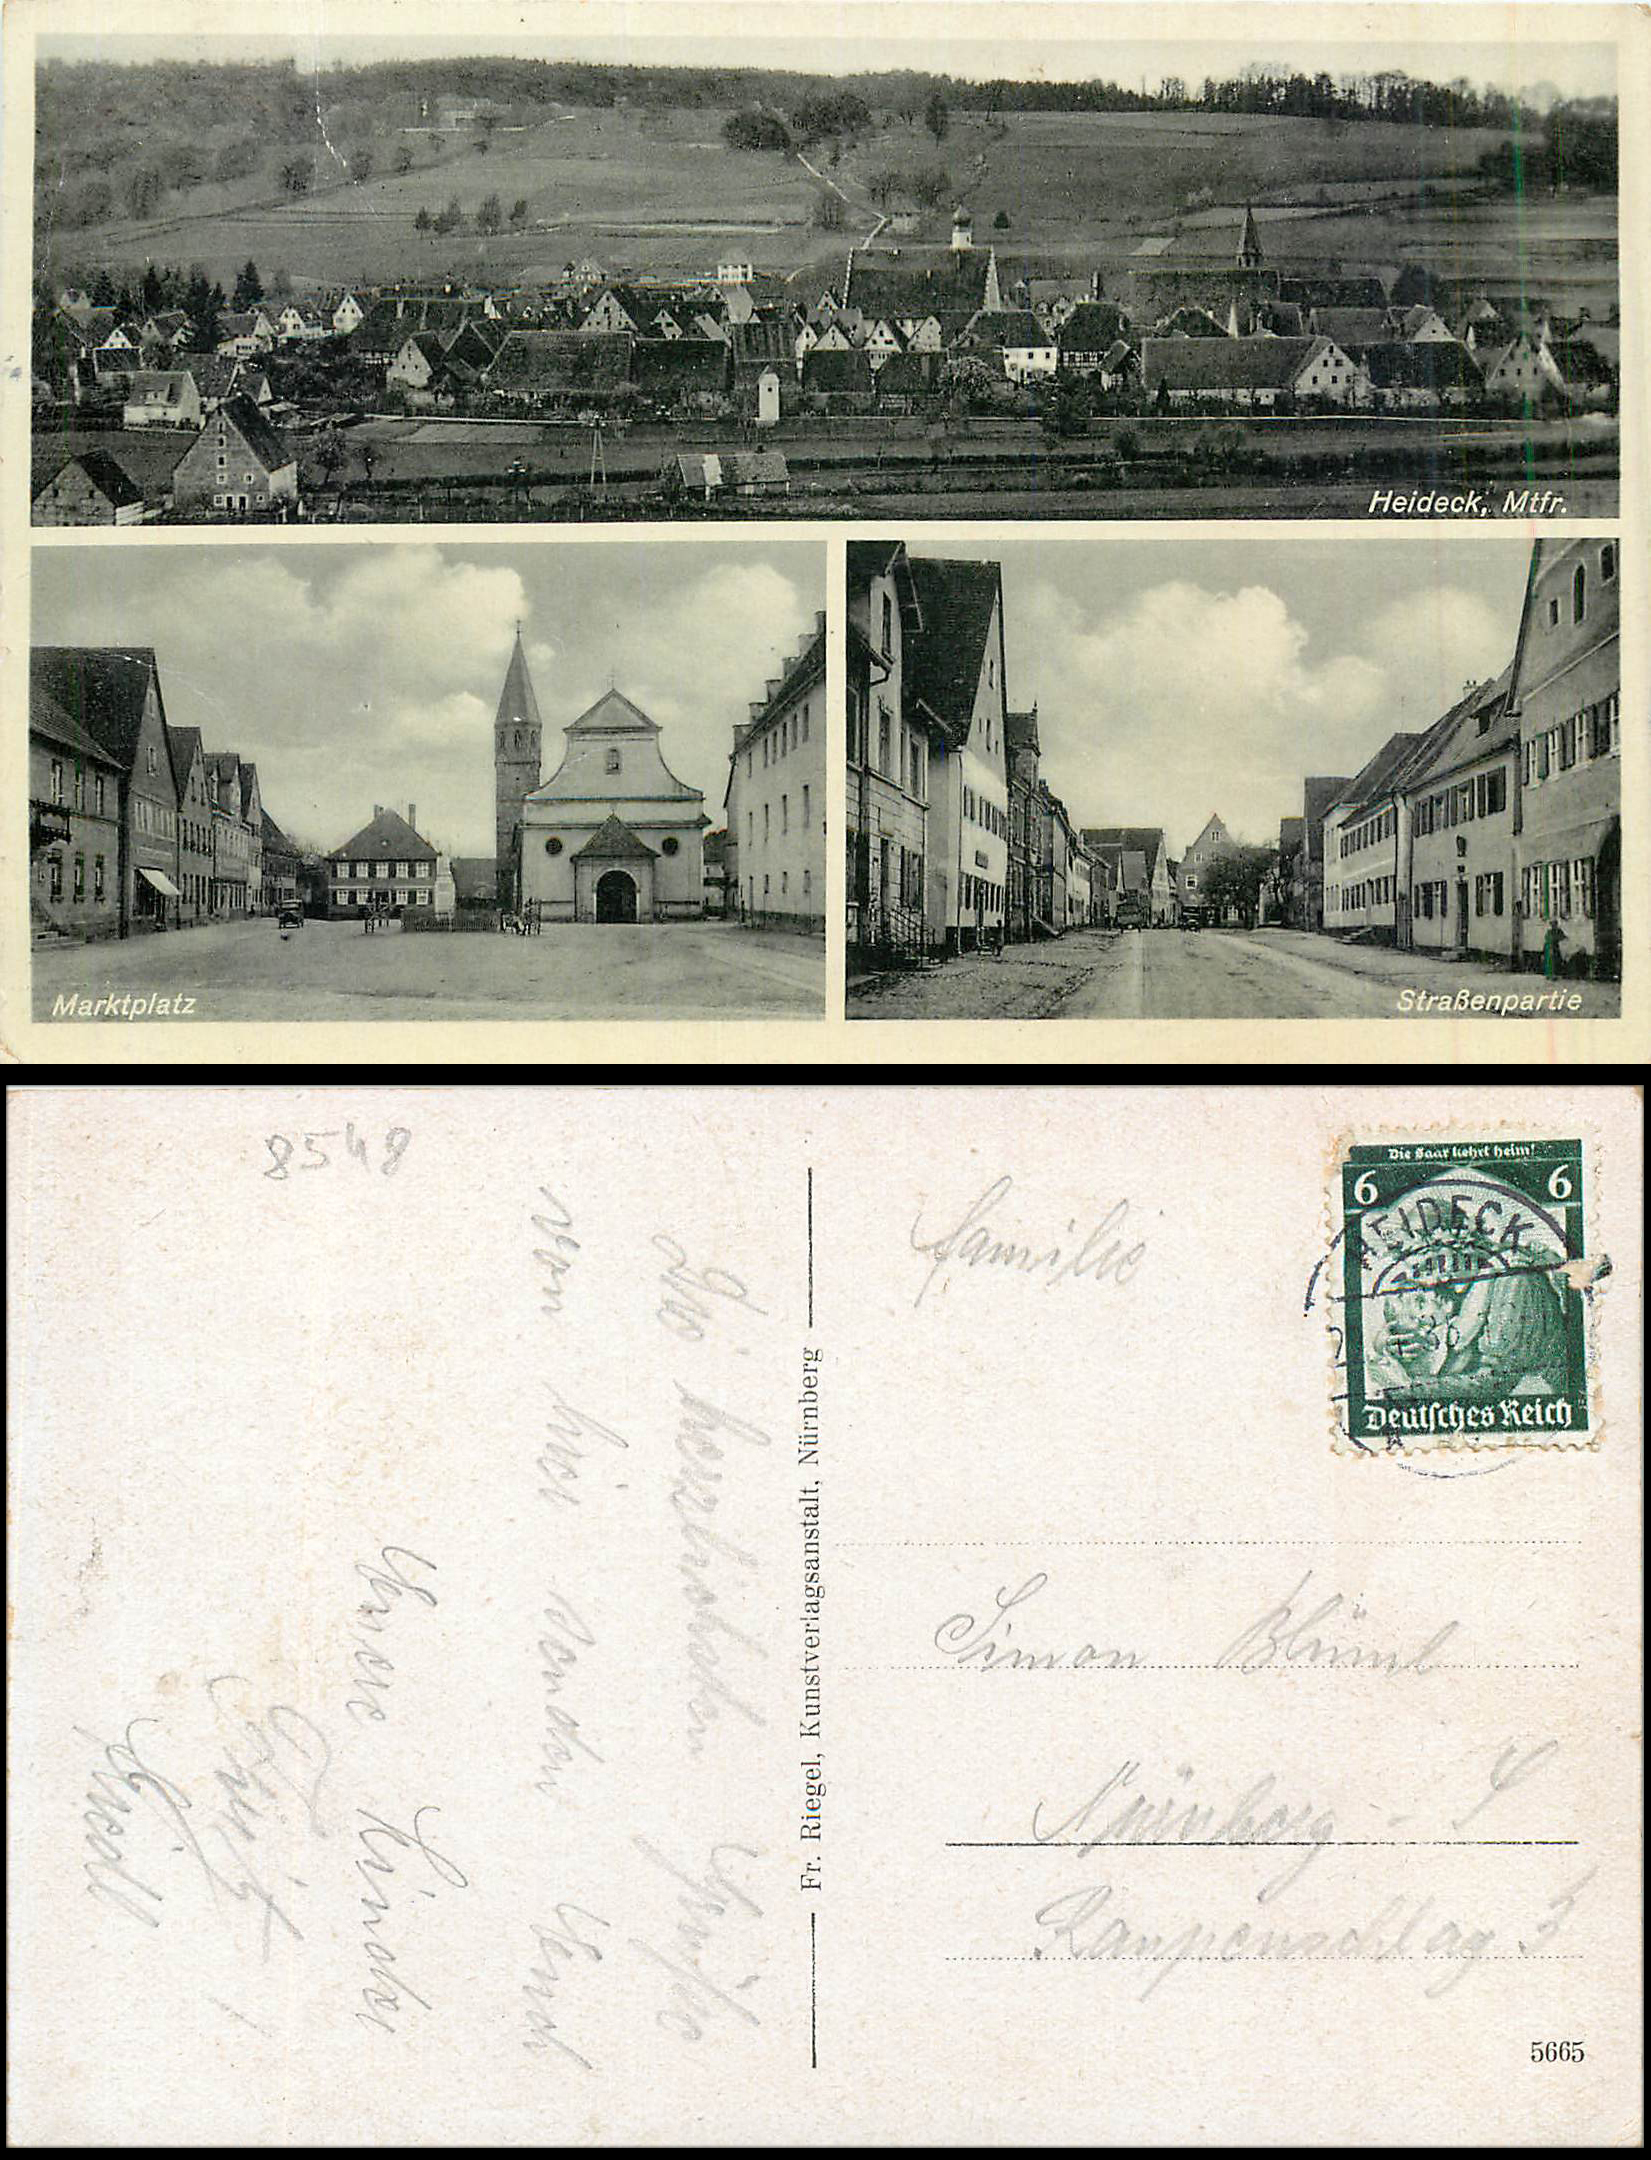 Heideck, Mtfr.
Marktplatz
Straßenpartie
8548
Die herzlichsten Grüße
von hier senden Euch
Eure Kinder
Fritz
Fr. Riegel, Kunstverlagsanstalt, Nürnberg
Die Saar kehrt heim!
6 6
HEIDECK
Deutsches Reich
Familie
Simon Blüml
Nürnberg - S
5665